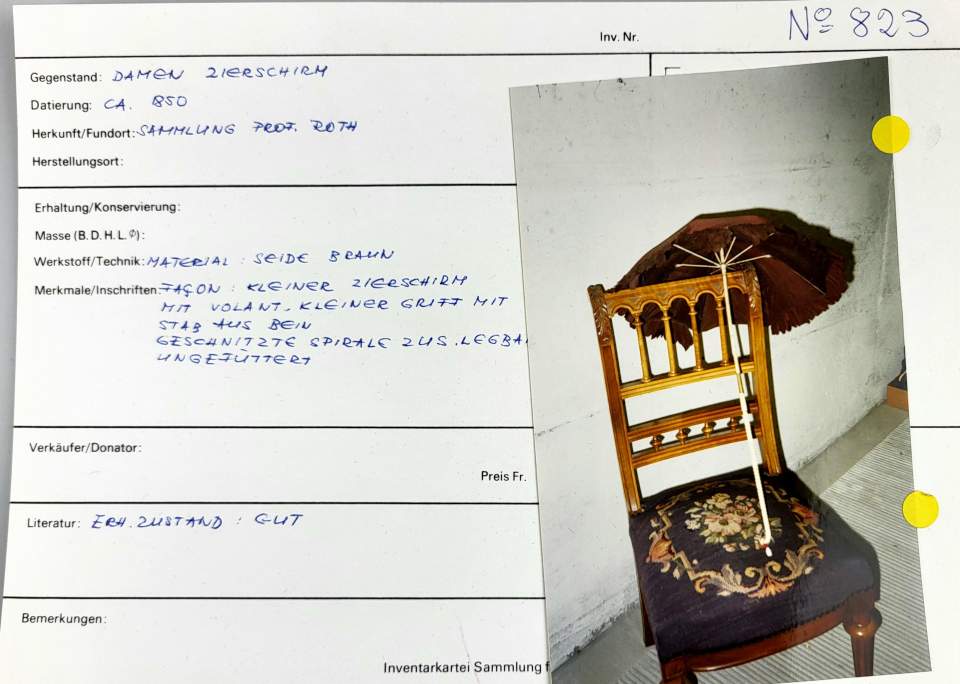 Inv. Nr. Nº 823
Gegenstand: DAMEN ZIERSCHIRM
Datierung: CA. 850
Herkunft/Fundort: SAMMLUNG PROF. ROTH
Herstellungsort:
Erhaltung/Konservierung:
Masse (B. D. H. L. Ø):
Werkstoff/Technik: MATERIAL : SEIDE BRAUN
Merkmale/Inschriften: FAÇON : KLEINER ZIERSCHIRM
MIT VOLANT, KLEINER GRIFF MIT
STAB AUS BEIN
GESCHNITZTE SPIRALE ZUS.LEGBA
UNGEFÜTTERT
Verkäufer/Donator:
Preis Fr.
Literatur: ERH. ZUSTAND : GUT
Bemerkungen:
Inventarkartei Sammlung f